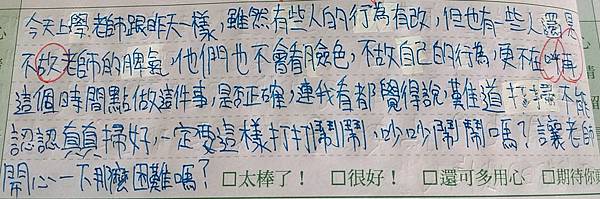 今天上學老師跟昨天一樣，雖然有些人的行為有改，但也有一些人還是
不故老師的脾氣，他們也不會看臉色，不故自己的行為，更不在呼再
這個時間點做這件事，是否正確，連我看都覺得說，難道打掃不能
認認真真掃好，一定要這樣打打鬧鬧，吵吵鬧鬧嗎？讓老師
開心一下那麼困難嗎？
□太棒了！ □很好！ □還可多用心 □期待你